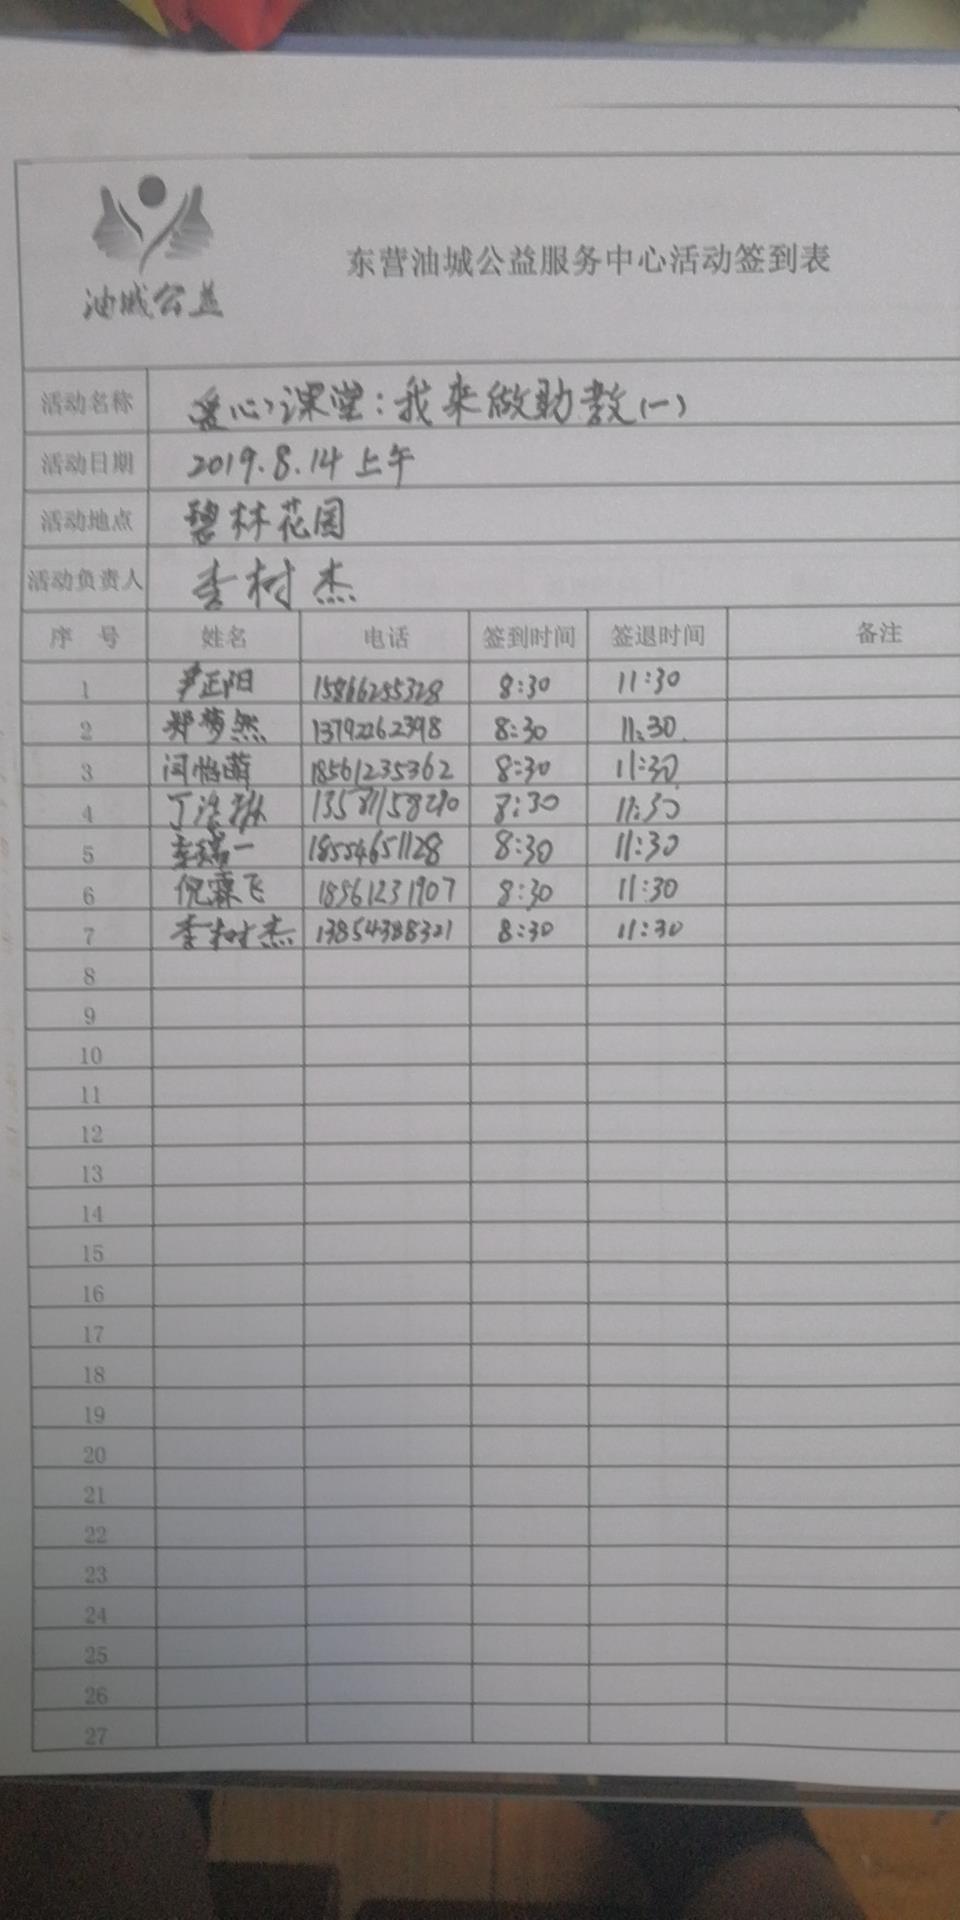 油城公益
东营油城公益服务中心活动签到表
活动名称 爱心课堂：我来做助教(一)
活动日期 2019.8.14上午
活动地点 碧林花园
活动负责人 李树杰
序 号 姓名 电话 签到时间 签退时间 备注
1 尹正阳 15866255328 8:30 11:30
2 郑梦然 13792262398 8:30 11:30
3 闫怡萌 18561235362 8:30 11:30
4 丁 8:30 11:30
5 李瑞一 18554651128 8:30 11:30
6 倪霖飞 18561231907 8:30 11:30
7 李树杰 13854388321 8:30 11:30
8
9
10
11
12
13
14
15
16
17
18
19
20
21
22
23
24
25
26
27